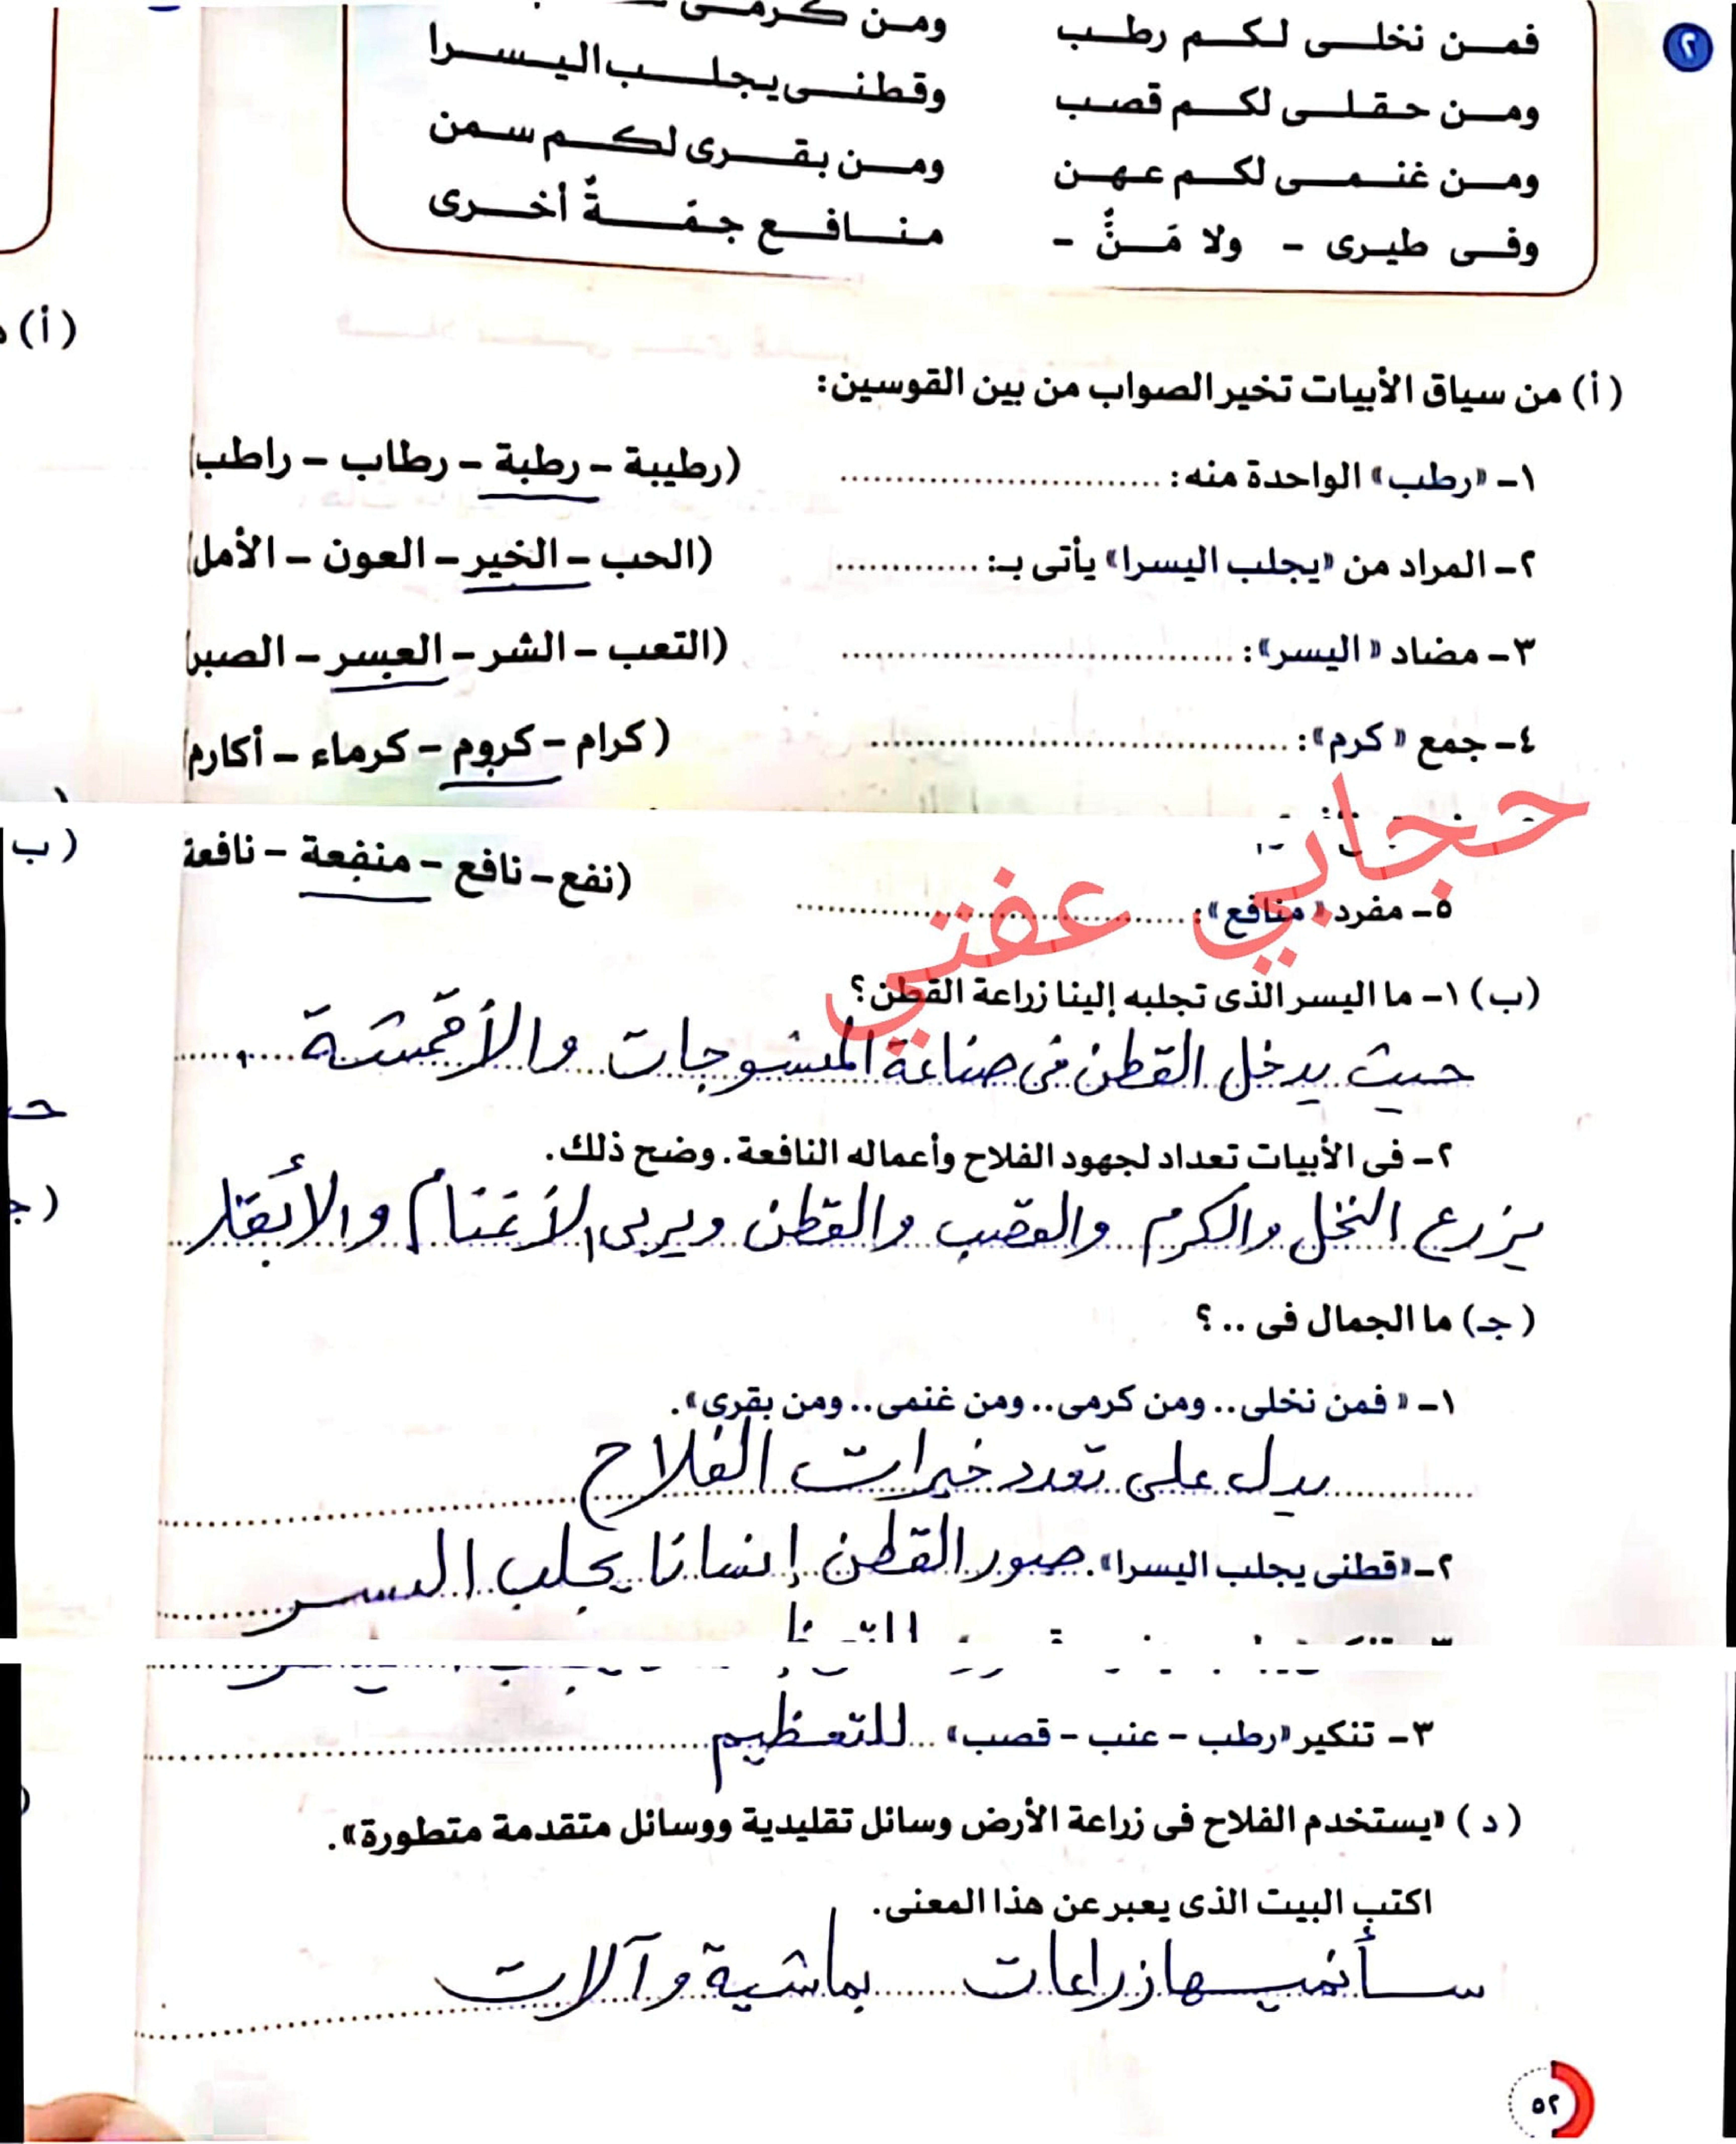 ٢
فمن نخلى لكم رطب
ومن كرمى
ومن حقلى لكم قصب
وقطنى يجلب اليسرا
ومن غنمى لكم عهن
ومن بقرى لكم سمن
وفى طيرى - ولا مَنٌّ -
منافع جمَةٌ أخرى
(أ)
(أ) من سياق الأبيات تخير الصواب من بين القوسين:
١- «رطب» الواحدة منه: .............................. (رطيبة - رطبة - رطاب - راطب)
٢- المراد من «يجلب اليسرا» يأتى بـ: ............. (الحب - الخير - العون - الأمل)
٣- مضاد «اليسر»: .................................... (التعب - الشر - العسر - الصبر)
٤- جمع «كرم»: ....................................... (كرام - كروم - كرماء - أكارم)
حجابي عفتي
٥- مفرد «منافع»: .................................... (نفع - نافع - منفعة - نافعة
(ب
(ب) ١- ما اليسر الذى تجلبه إلينا زراعة القطن؟
حيث يدخل القطن فى صناعة المنسوجات والأقمشة
٢- فى الأبيات تعداد لجهود الفلاح وأعماله النافعة. وضح ذلك.
يزرع النخل والكرم والقصب والقطن ويربى الأغنام والأبقار
(جـ) ما الجمال فى ..؟
١- «فمن نخلى.. ومن كرمى.. ومن غنمى.. ومن بقرى».
يدل على تعدد خيرات الفلاح
٢- «قطنى يجلب اليسرا». صور القطن إنسانا يجلب اليسر
٣- تنكير «رطب - عنب - قصب» ... للتعظيم
(د) «يستخدم الفلاح فى زراعة الأرض وسائل تقليدية ووسائل متقدمة متطورة».
اكتب البيت الذى يعبر عن هذا المعنى.
سأنميها زراعات بماشية وآلات
٥٢